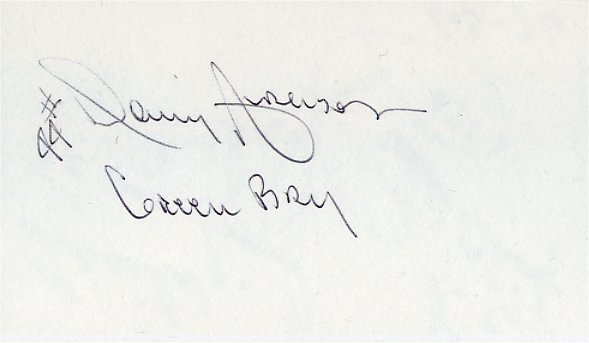 #44 Donny Anderson
Green Bay